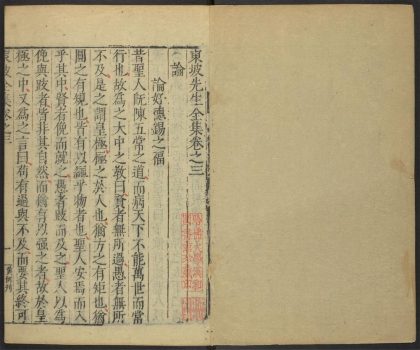 東坡先生全集卷之三
論
論好德錫之福
昔聖人既陳五常之道而病天下不能萬世而常
行也故為之大中之教曰賢者無所過愚者無所
不及是之謂皇極極之於人也猶方之有矩也猶
圓之有規也皆有以繩乎物者也聖人安焉而入
乎其中賢者俛而就之愚者跂而及之聖人以為
俛與跂者皆非其自然而猶有以強之者故於皇
極之中又為之言曰苟有過與不及而要其終可
東坡全集卷之三
一